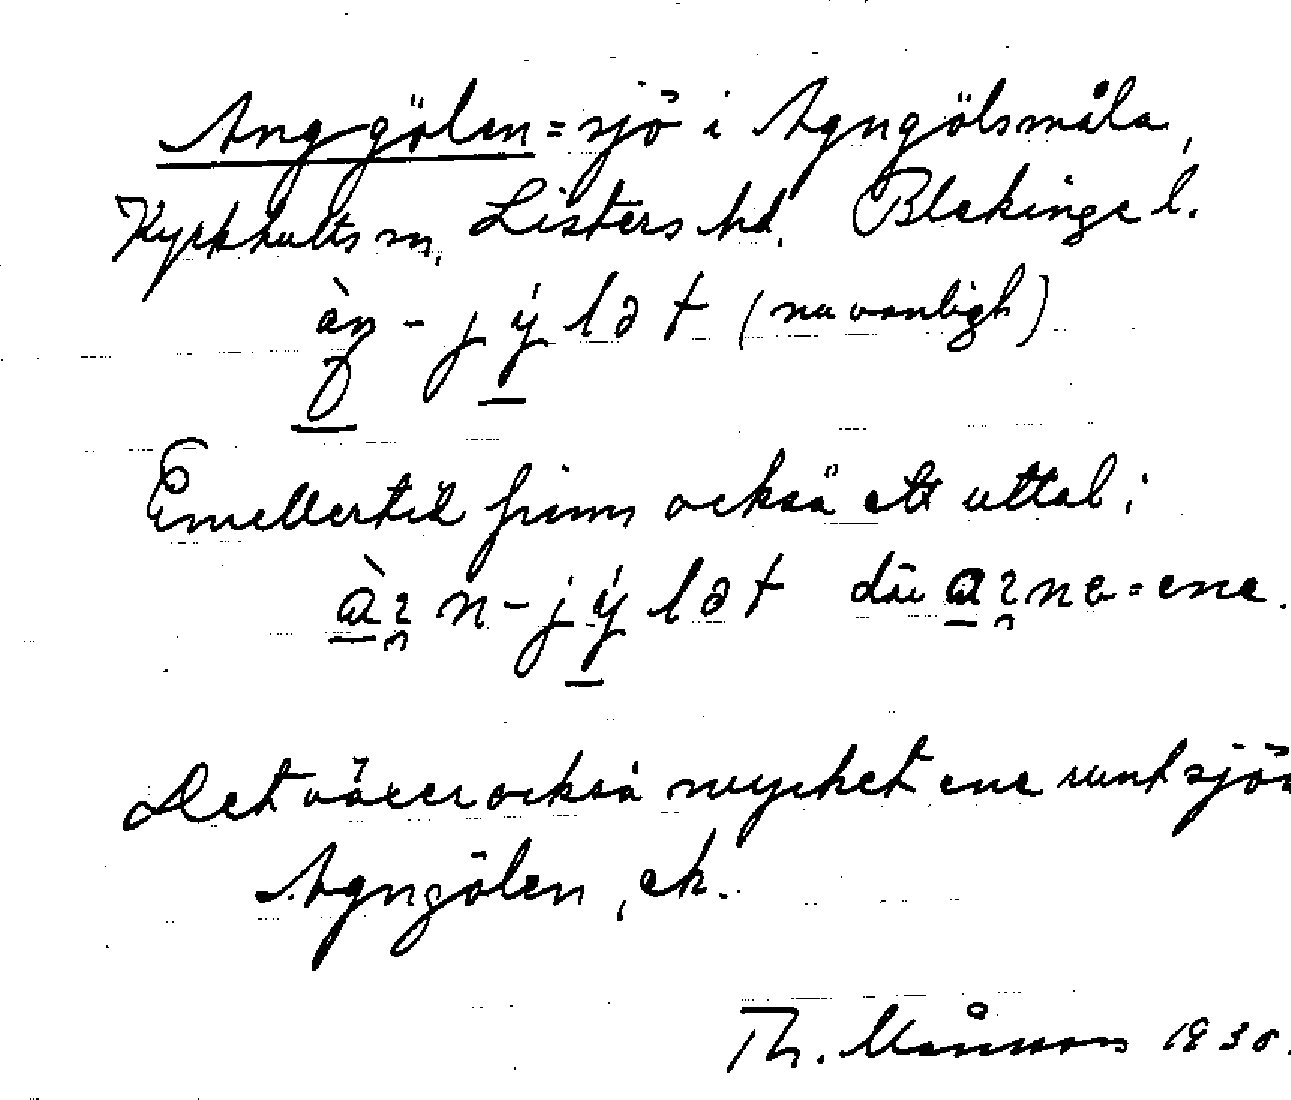 Anggölen = sjö i Agngölsmåla,
Kyrkhults sn, Listers hd. Blekinge l.
àŋ - j ý l ə t (nu vanligh)
Emellertid finns också ett uttal:
n - j ý l ə t där = ene.
Det växer också mycket ene runt sjön
Agngölen, ek.
Th. Månsson 1930.